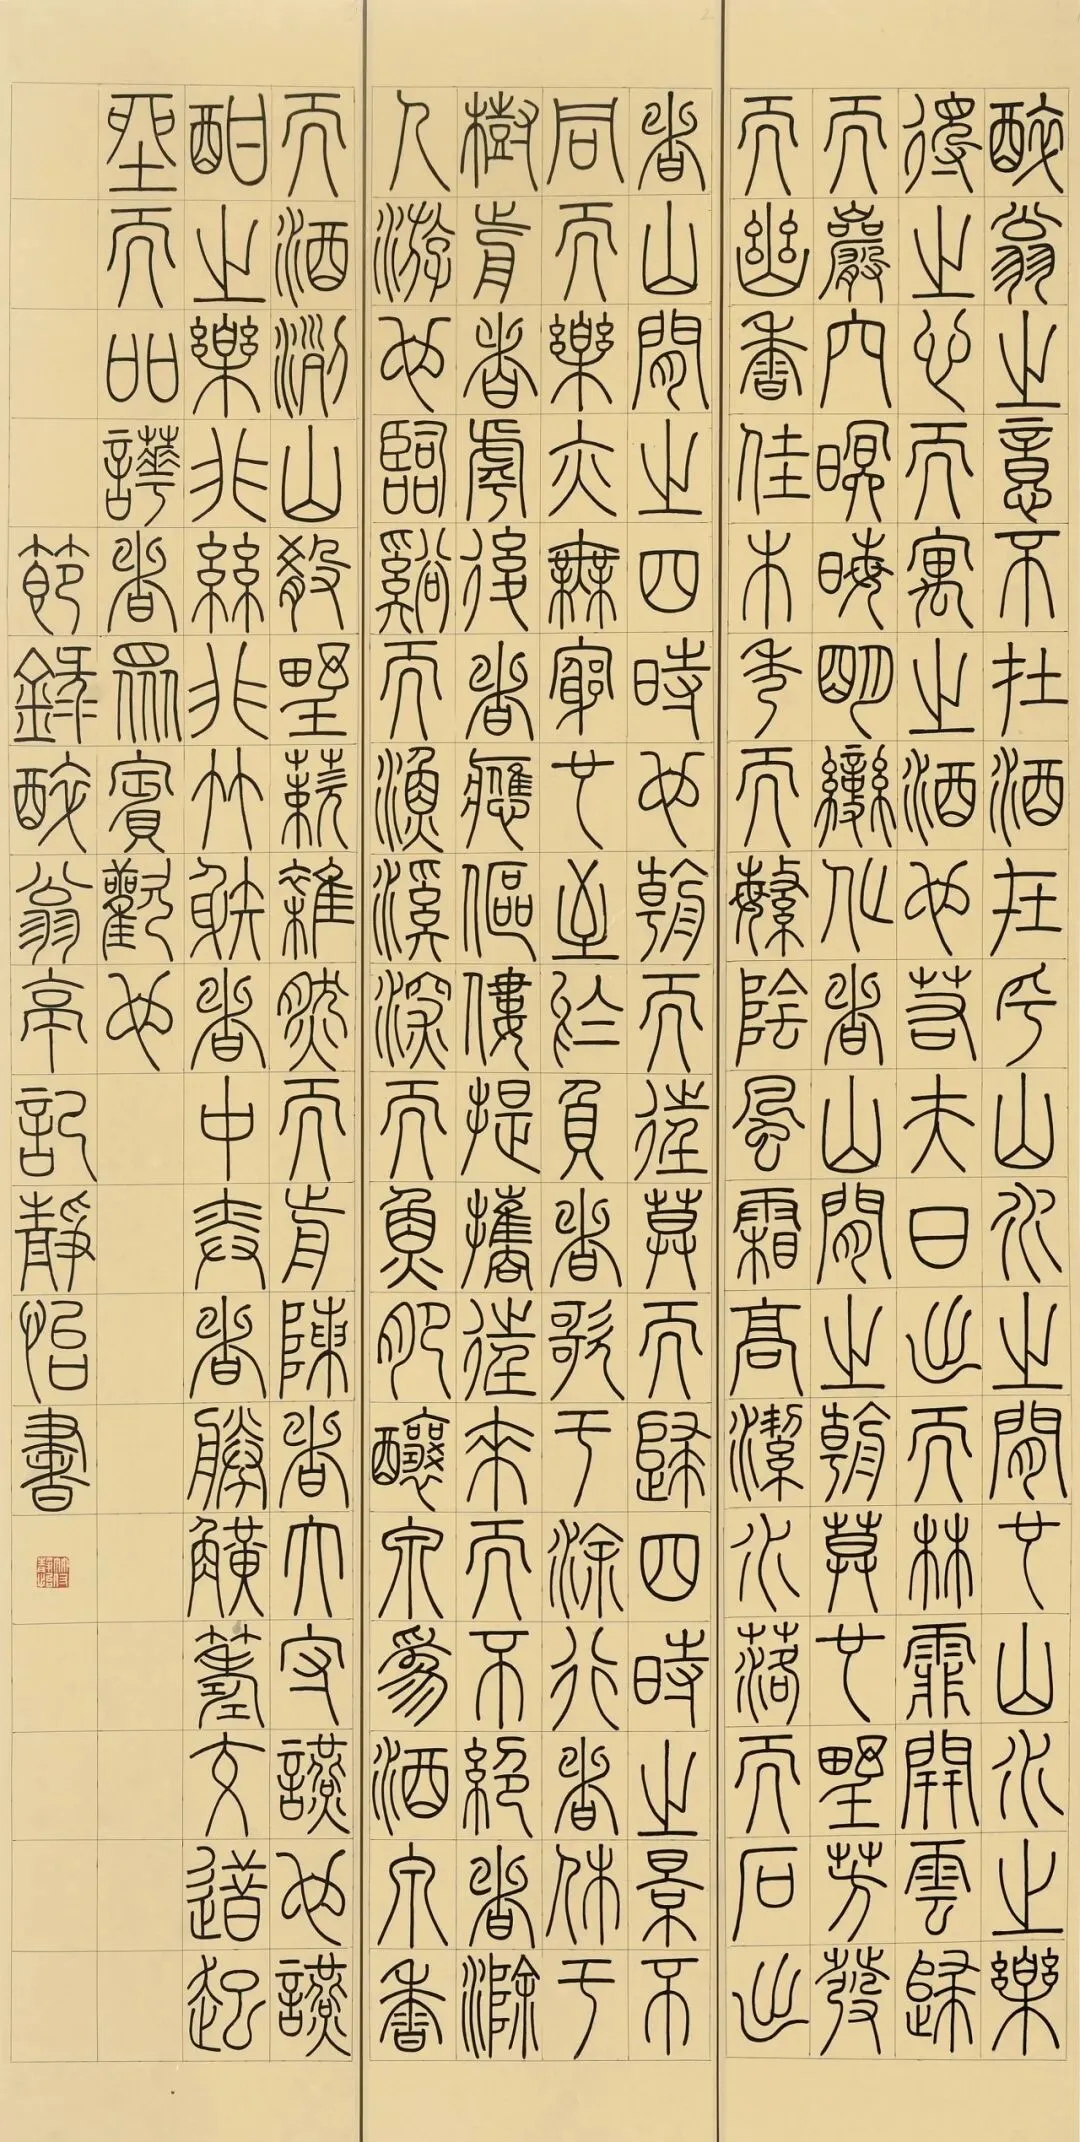 醉翁之意不在酒在乎山水之間也山水之樂
得之心而寓之酒也若夫日出而林霏開雲歸
而巖穴暝晦明變化者山間之朝莫也野芳發
而幽香佳木秀而繁陰風霜高潔水落而石出
者山間之四時也朝而往莫而歸四時之景不
同而樂亦無窮也至於負者歌于涂行者休于
樹前者虖後者應傴僂提攜往來而不絕者滁
人游也臨谿而漁溪深而魚肥釀泉為酒泉香
而酒洌山殽野蔌雜然而前陳者大守讌也讌
酣之樂非絲非竹射者中弈者勝觵籌交逪起
坐而吅譁者眾賓歡也
節錄醉翁亭記靜怡書